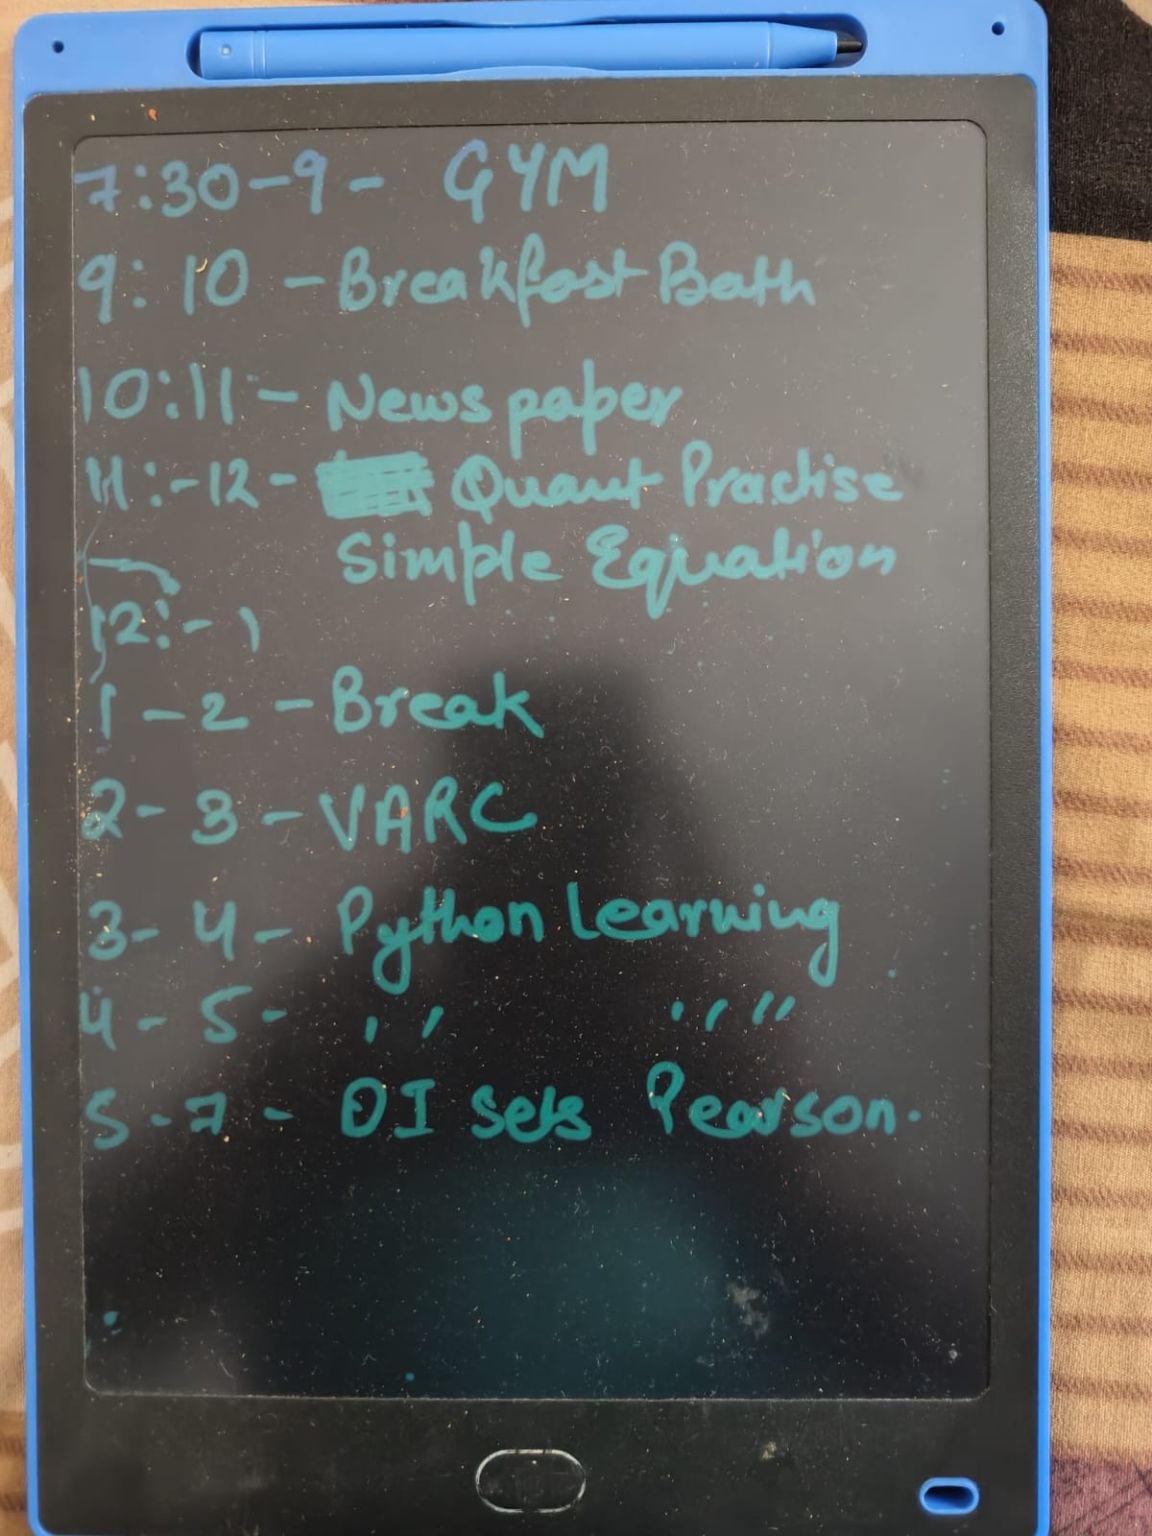 7:30-9- GYM
9:10 - Breakfast Bath
10:11 - News paper
11:-12- Quant Practise
Simple Equation
12:- 1
1 - 2 - Break
2 - 3 - VARC
3 - 4 - Python Learning
4 - 5 - '' ''''
5 - 7 - DI sets Pearson.